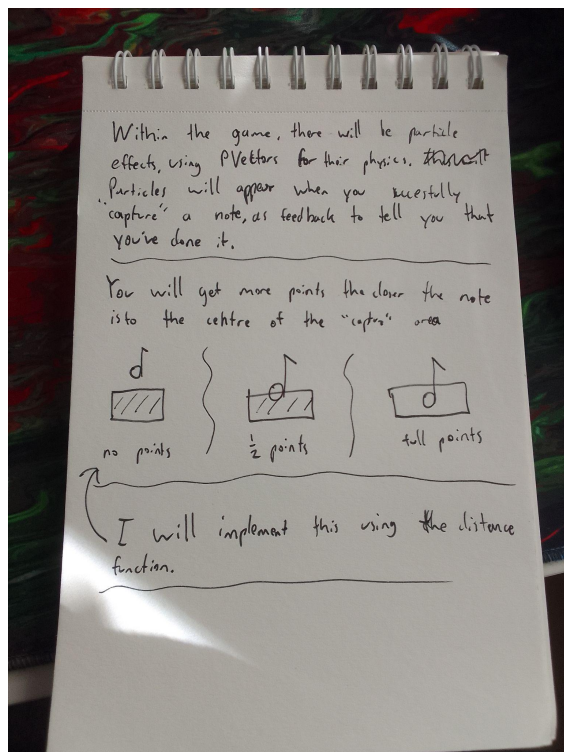 Within the game, there will be particle
effects, using PVectors for their physics.
Particles will appear when you succesfully
"capture" a note, as feedback to tell you that
you've done it.
You will get more points the closer the note
is to the centre of the "captur" area
no points
1/2 points
full points
I will implement this using the distance
function.